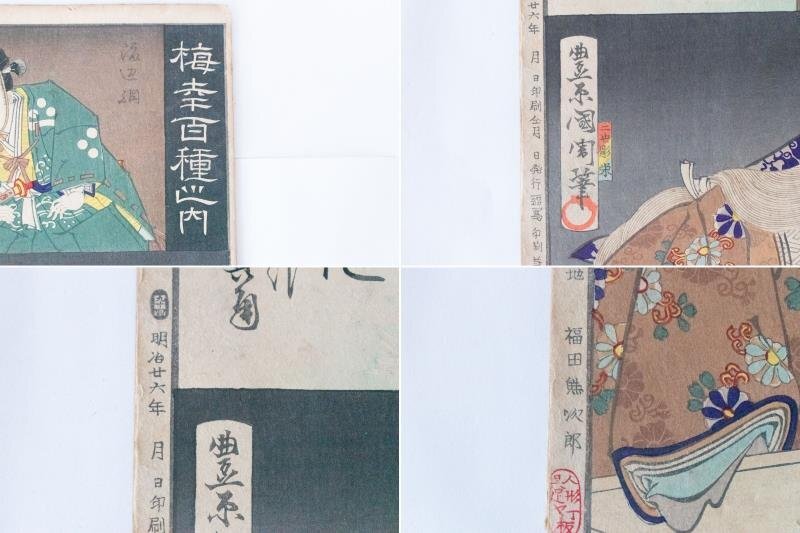 梅幸百種之内
渡辺綱
廿六年 月 日印刷仝月 日発行
豊原國周筆
明治廿六年 月 日印刷
豊原
地 福田熊次郎
人形丁
具足ヤ板